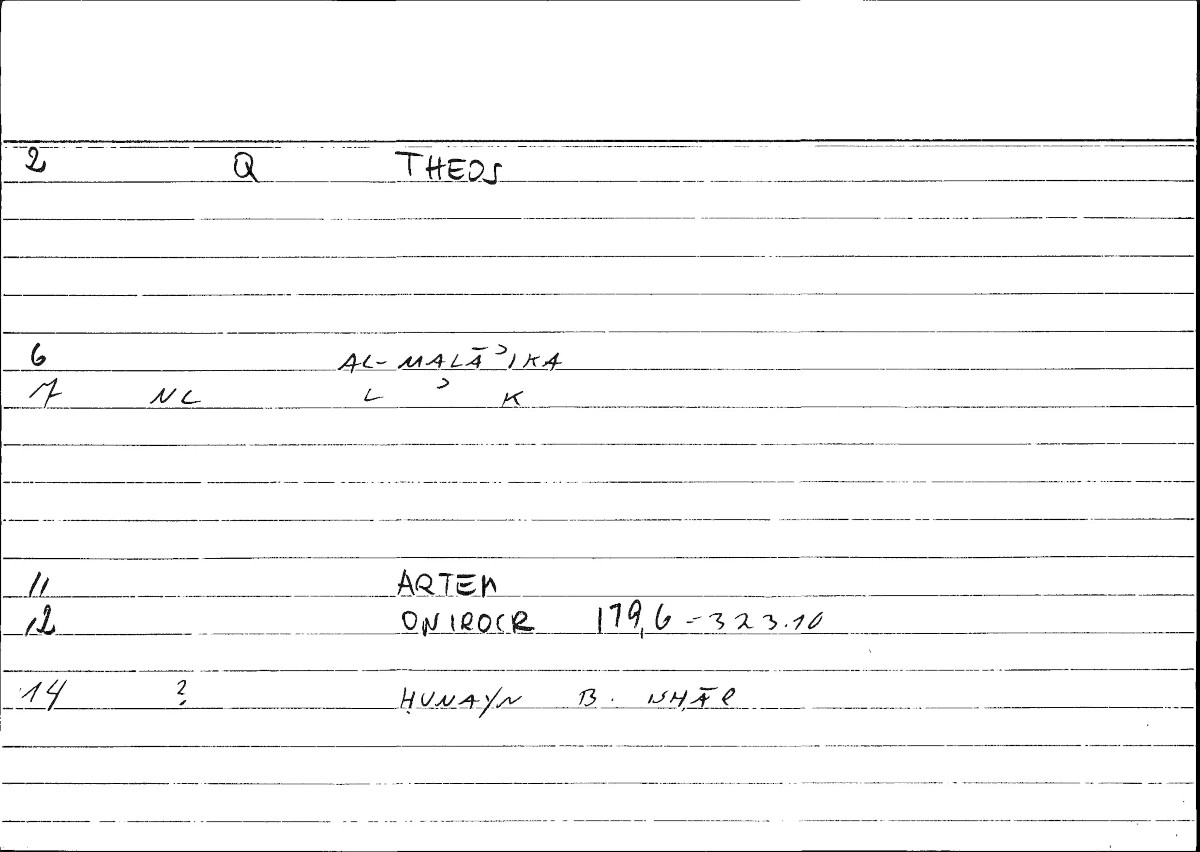 2 Q THEOS
6 AL-MALĀʾIKA
7 NL L ʾ K
11 ARTEM
12 ONIROCR 179,6-323.10
14 ? ḤUNAYN B. ISḤĀQ